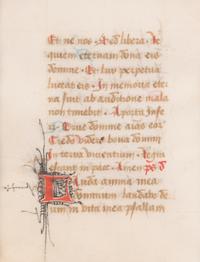 Et ne nos. Sed libera. Re
quiem eternam dona eis
domine. Et lux perpetua
luceat eis. In memoria eter
na
erit ab auditione mala
non timebit. A porta infe
ri. Erue domine aias eor
Credo videre bona domini
In terra viventium. Requi
escant in pace. Amen. ps. d
Lauda anima mea
dominum laudabo do
um in vita mea psallam